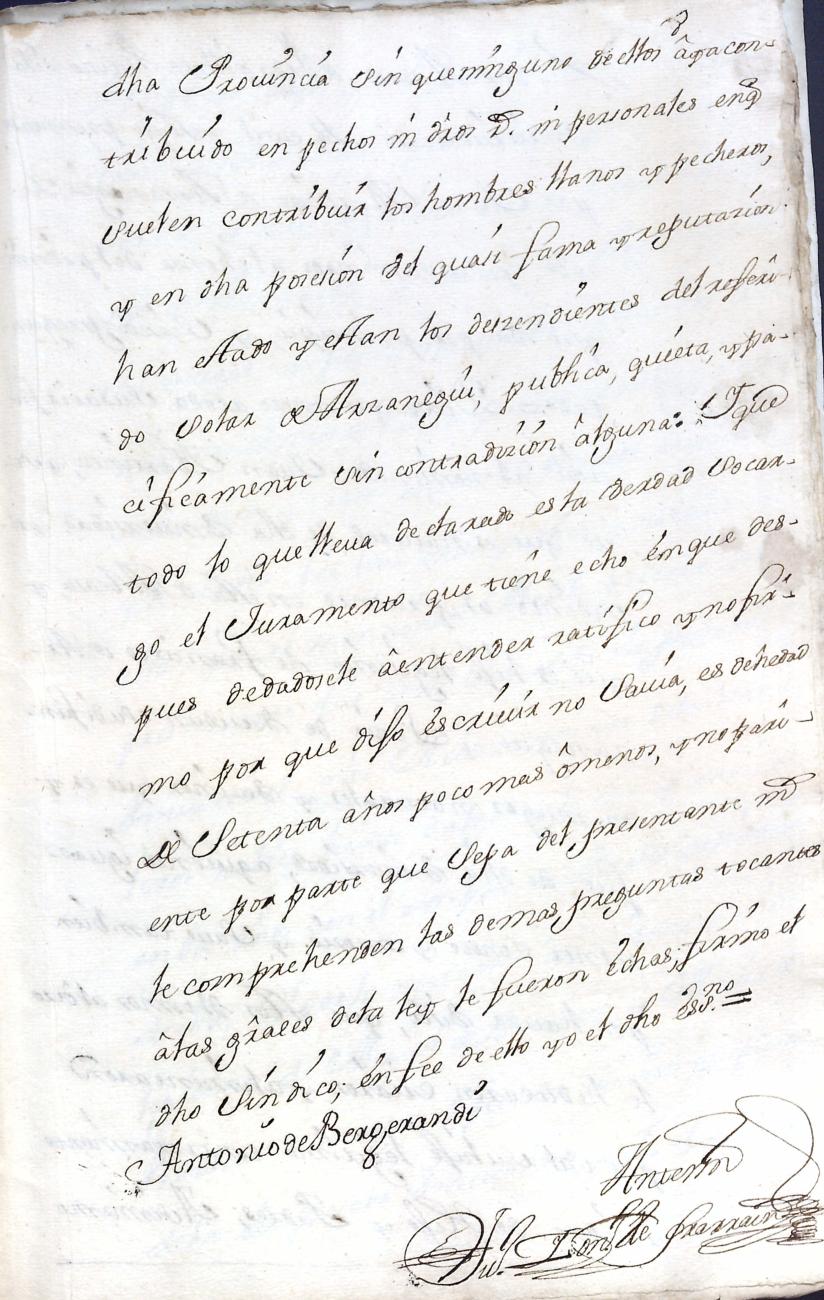 dha Prouincia sin queninguno de ellos âyacon-
tribuido en pechos ni dros Rs. ni personales enq
suelen contribuir los hombres llanos y pecheros,
y en dha posesion del quasi fama y reputazion
han estado y estan los deszendientes del referi-
do solar de Arzanegui, publica, quieta, y pa-
cificamente sin contradizion âlguna: Y que
todo lo que lleua declarado es la verdad socar-
go el Juramento que tiene echo en que des-
pues dedadosele âentender ratifico y no fir-
mo por que dijo escriuir no sauia, es de hedad
de Setenta años poco mas ômenos, y no pari-
ente por parte que sepa del presentante ni
le comprehenden las demas preguntas tocantes
âlas grâles dela ley le fueron echas, firmo el
dho sindico; en fee de ello yo el dho essno =
Antonio de Bergerandi
Antemi